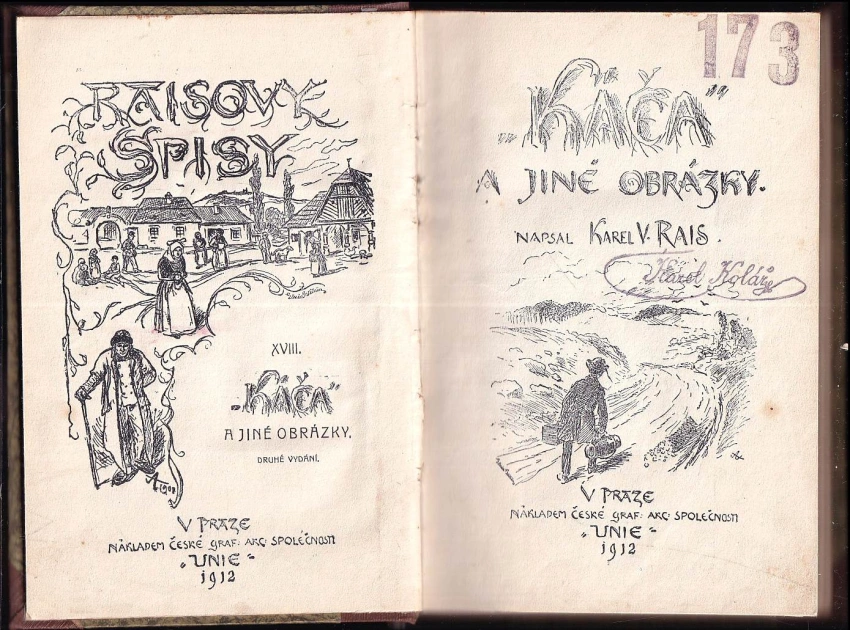 RAISOVY
SPISY
XVIII.
„KÁČA“
A JINÉ OBRÁZKY.
DRUHÉ VYDÁNÍ.
V PRAZE
NÁKLADEM ČESKÉ GRAF. AKC. SPOLEČNOSTI
„UNIE“
1912
173
„KÁČA“
A JINÉ OBRÁZKY.
NAPSAL KAREL V. RAIS.
Karel Kolář
V PRAZE
NÁKLADEM ČESKÉ GRAF. AKC. SPOLEČNOSTI
„UNIE“
1912